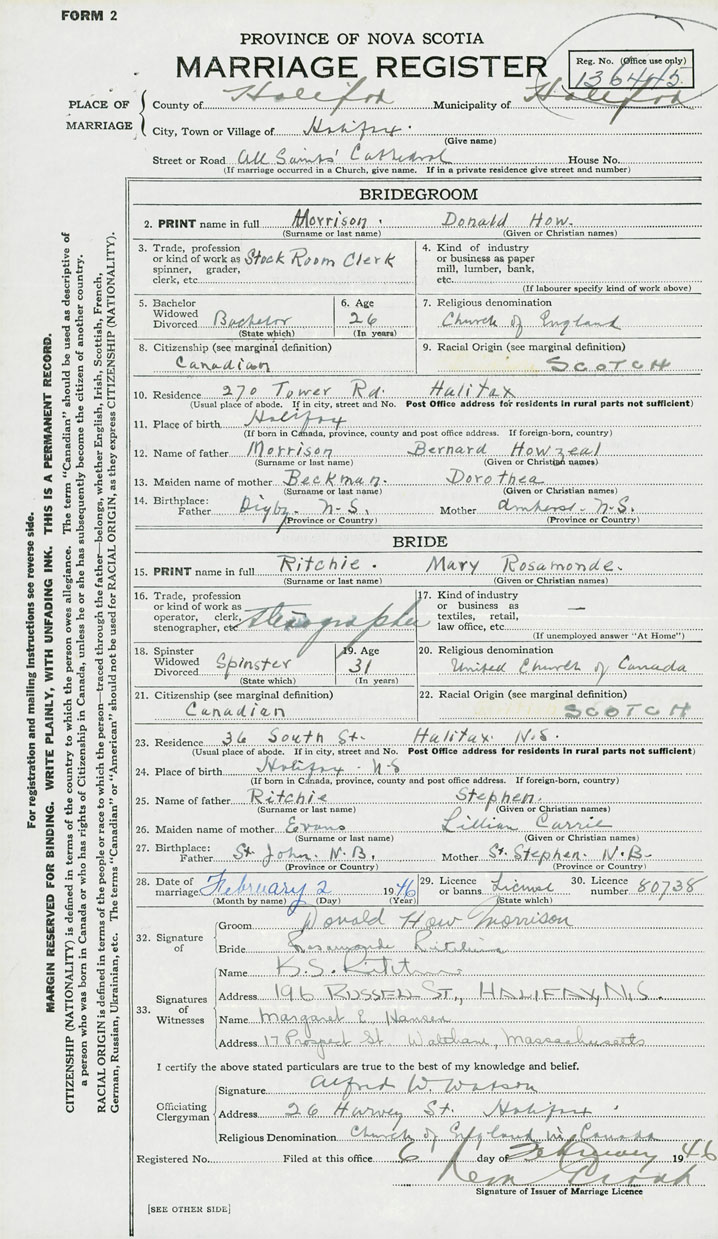 FORM 2
PROVINCE OF NOVA SCOTIA
MARRIAGE REGISTER
Reg. No. (Office use only)
136445
PLACE OF MARRIAGE
County of Halifax Municipality of Halifax
City, Town or Village of Halifax.
(Give name)
Street or Road All Saints' Cathedral House No.
(If marriage occurred in a Church, give name. If in a private residence give street and number)
BRIDEGROOM
2. PRINT name in full Morrison. Donald How.
(Surname or last name) (Given or Christian names)
3. Trade, profession or kind of work as spinner, grader, clerk, etc. Stock Room Clerk
4. Kind of industry or business as paper mill, lumber, bank, etc.
(If labourer specify kind of work above)
5. Bachelor Widowed Divorced Bachelor
(State which)
6. Age 26
(In years)
7. Religious denomination
Church of England
8. Citizenship (see marginal definition)
Canadian
9. Racial Origin (see marginal definition)
SCOTCH
10. Residence 270 Tower Rd. Halifax
(Usual place of abode. If in city, street and No. Post Office address for residents in rural parts not sufficient)
11. Place of birth Halifax
(If born in Canada, province, county and post office address. If foreign-born, country)
12. Name of father Morrison Bernard Howzeal
(Surname or last name) (Given or Christian names)
13. Maiden name of mother Beckman. Dorothea
(Surname or last name) (Given or Christian names)
14. Birthplace: Father Digby. N.S. Mother Amherst. N.S.
(Province or Country) (Province or Country)
BRIDE
15. PRINT name in full Ritchie. Mary Rosamonde.
(Surname or last name) (Given or Christian names)
16. Trade, profession or kind of work as operator, clerk, stenographer, etc. Stenographer
17. Kind of industry or business as textiles, retail, law office, etc. —
(If unemployed answer "At Home")
18. Spinster Widowed Divorced Spinster
(State which)
19. Age 31
(In years)
20. Religious denomination
United Church of Canada
21. Citizenship (see marginal definition)
Canadian
22. Racial Origin (see marginal definition)
SCOTCH
23. Residence 36 South St. Halifax N.S.
(Usual place of abode. If in city, street and No. Post Office address for residents in rural parts not sufficient)
24. Place of birth Halifax. N.S
(If born in Canada, province, county and post office address. If foreign-born, country)
25. Name of father Ritchie Stephen.
(Surname or last name) (Given or Christian names)
26. Maiden name of mother Evans Lillian Carrie
(Surname or last name) (Given or Christian names)
27. Birthplace: Father St. John. N.B. Mother St. Stephen. N.B.
(Province or Country) (Province or Country)
28. Date of marriage February 2 1946
(Month by name) (Day) (Year)
29. Licence or banns License
(State which)
30. Licence number 80738
32. Signature of
Groom Donald How Morrison
Bride Rosamonde Ritchie
33. Signatures of Witnesses
Name K.S. Ritchie
Address 196 RUSSELL ST., HALIFAX, N.S.
Name Margaret E. Hansen
Address 17 Prospect St. Waltham, Massachusetts
I certify the above stated particulars are true to the best of my knowledge and belief.
Officiating Clergyman
Signature Alfred W. Watson
Address 26 Harvey St. Halifax
Religious Denomination Church of England in Canada
Registered No. Filed at this office 6 day of February 1946
Signature of Issuer of Marriage Licence
[SEE OTHER SIDE]
For registration and mailing instructions see reverse side.
MARGIN RESERVED FOR BINDING. WRITE PLAINLY, WITH UNFADING INK. THIS IS A PERMANENT RECORD.
CITIZENSHIP (NATIONALITY) is defined in terms of the country to which the person owes allegiance. The term "Canadian" should be used as descriptive of
a person who was born in Canada or who has rights of Citizenship in Canada, unless he or she has subsequently become the citizen of another country.
RACIAL ORIGIN is defined in terms of the people or race to which the person—traced through the father—belongs, whether English, Irish, Scottish, French,
German, Russian, Ukrainian, etc. The terms "Canadian" or "American" should not be used for RACIAL ORIGIN, as they express CITIZENSHIP (NATIONALITY).